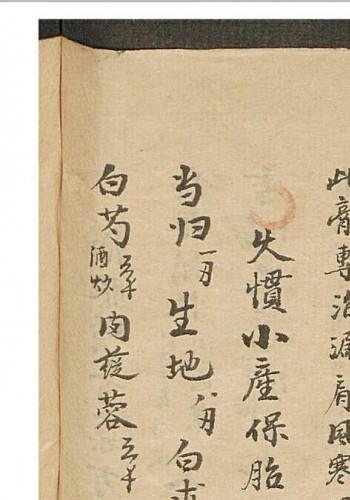 此膏專治漏肩風寒
失慣小產保胎
当归一 生地八 白
白芍酒炒 肉蓯蓉